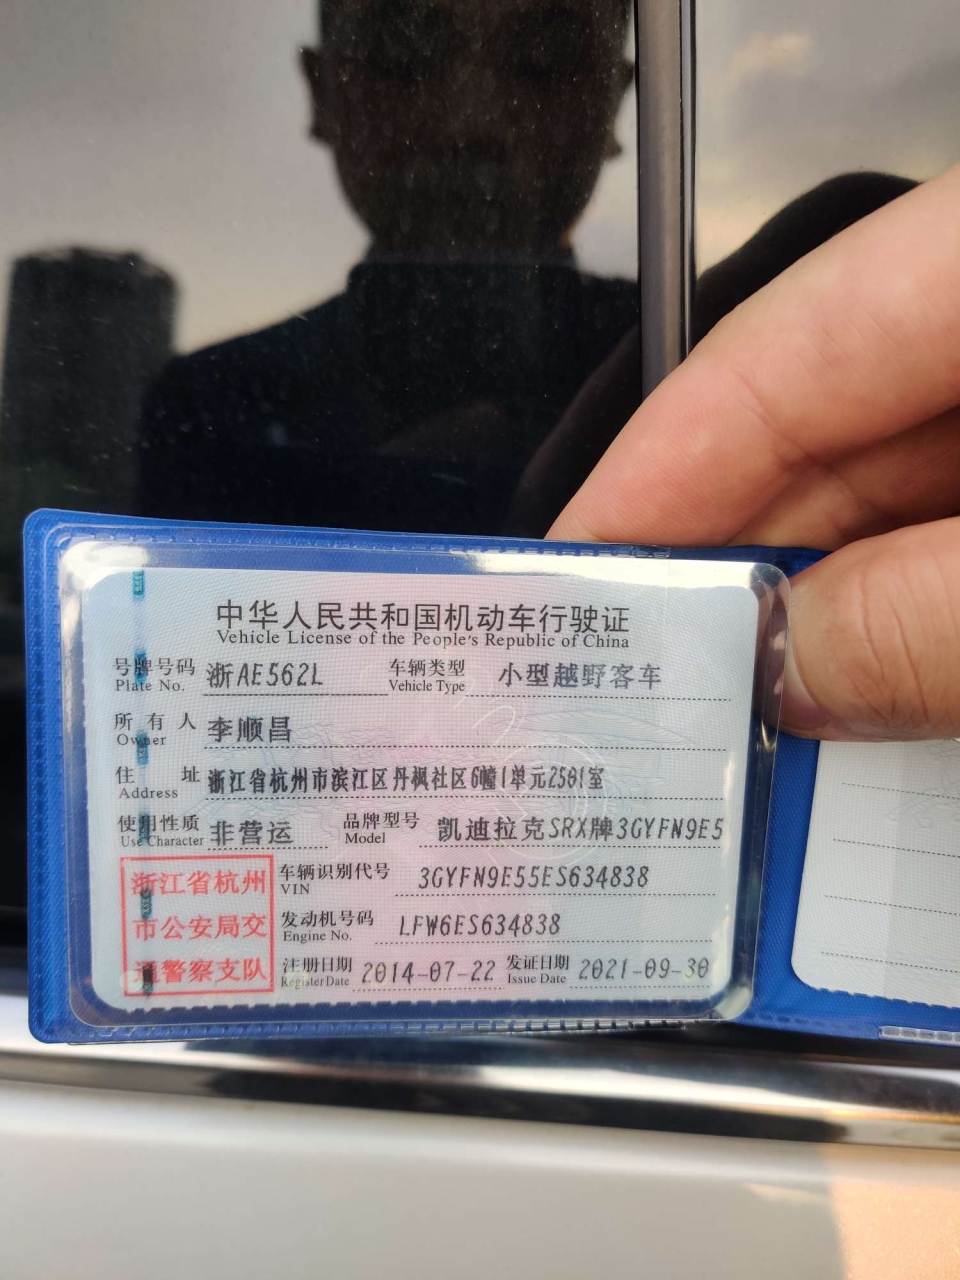 中华人民共和国机动车行驶证
Vehicle License of the People's Republic of China
号牌号码 浙AE562L 车辆类型 小型越野客车
Plate No. Vehicle Type
所有人 李顺昌
Owner
住址 浙江省杭州市滨江区丹枫社区6幢1单元2501室
Address
使用性质 非营运 品牌型号 凯迪拉克SRX牌3GYFN9E5
Use Character Model
浙江省杭州 车辆识别代号 3GYFN9E55ES634838
VIN
市公安局交 发动机号码 LFW6ES634838
Engine No.
通警察支队 注册日期 2014-07-22 发证日期 2021-09-30
Register Date Issue Date